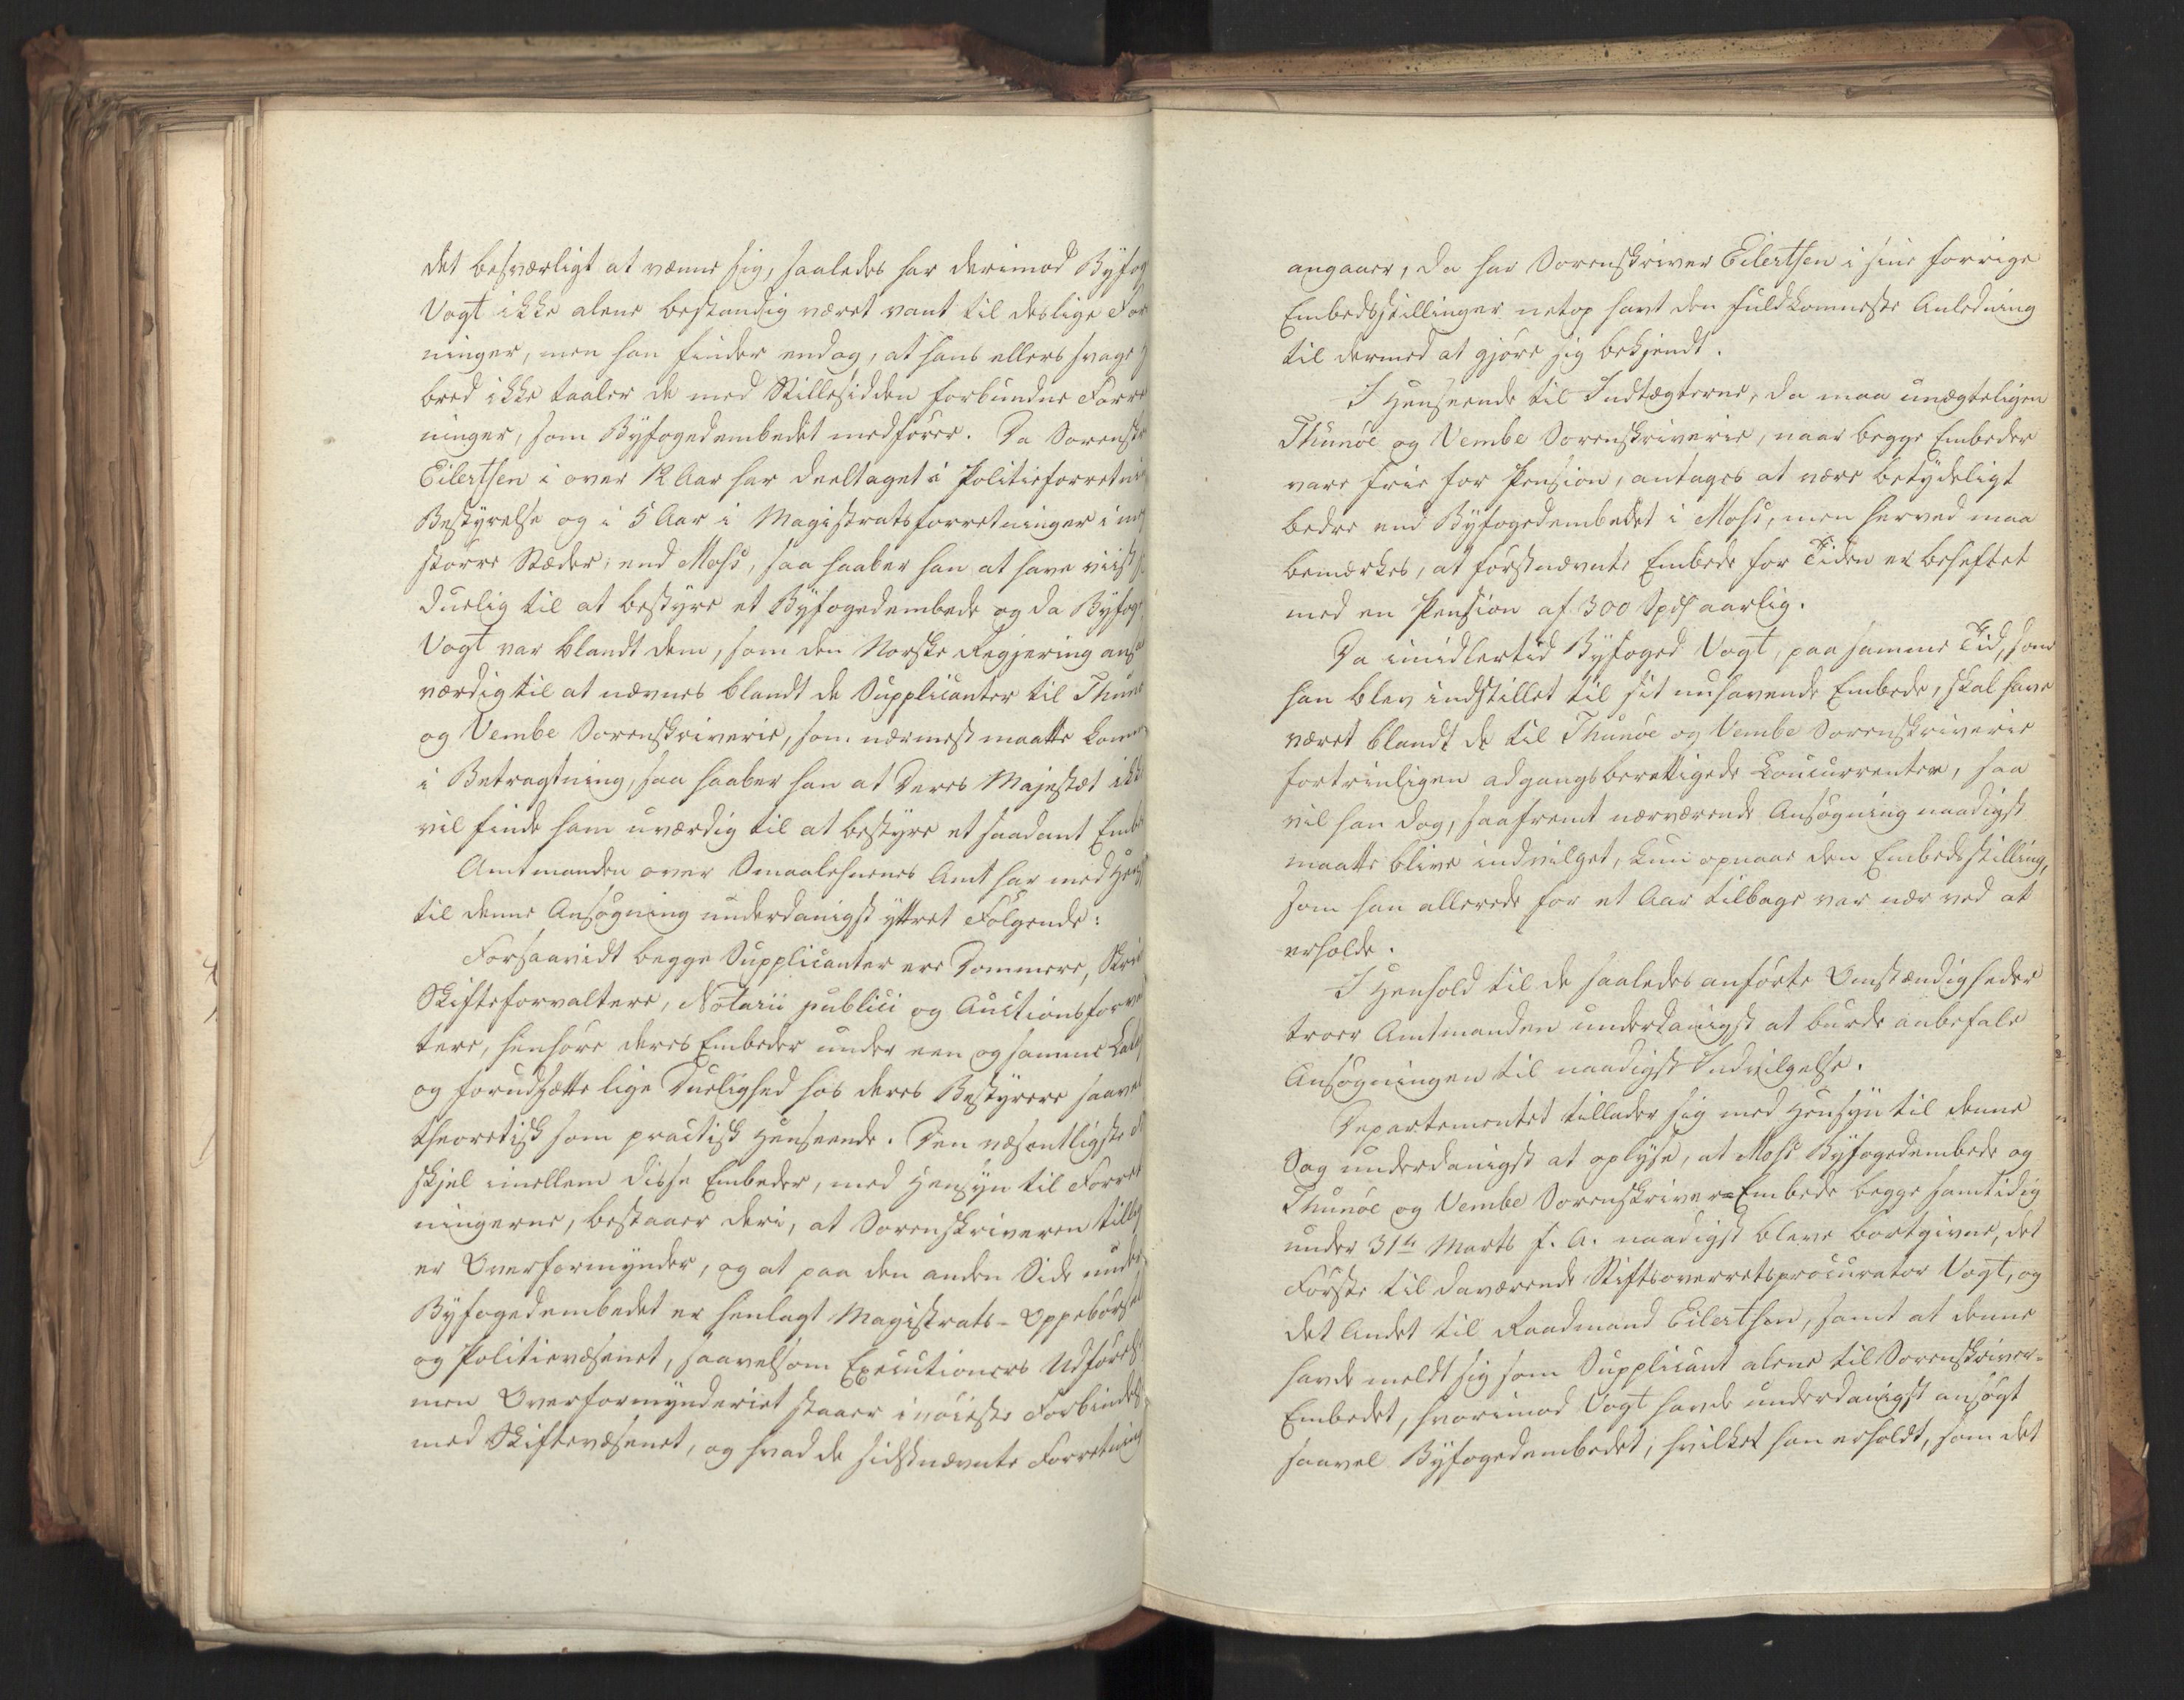 det besværligt at vænne sig, saaledes har derimod Byfog
Vogt ikke alene bestandig været vant til deslige For
ninger, men han finder endog, at hans ellers svage
bred ikke taaler de med Stillesidden forbundne Forre
ninger, som Byfogedembedet medfører. Da Sorenskr
Eilertsen i over 12 Aar har deeltaget i Politieforretni
Bestyrelse og i 5 Aar i Magistratsforretninger i
større Stæder, end Moss, saa haaber han at have viist
duelig til at bestyre et Byfogedembede og da Byfog
Vogt var blandt dem, som den Norske Regjering ansa
værdig til at nævnes blandt de Supplicanter til Thunø
og Vembe Sorenskriverie, som nærmest maatte komme
i Betragtning, saa haaber han at Deres Majestæt ikke
vil finde ham uværdig til at bestyre et saadant Embe
Amtmanden over Smaalehnenes Amt har med Hens
til denne Ansøgning underdanigst yttret Følgende:
Forsaavidt begge Supplicanter ere Dommere, Skri
Skifteforvaltere, Notarii publici og Auctionsforval
tere, henhøre deres Embeder under een og samme
og forudsætte lige Duelighed hos deres Bestyrere saavel
theoretisk som practisk Henseende. Den væsentligste
skjel imellem disse Embeder, med Hensyn til Forret
ningerne, bestaaer deri, at Sorenskriveren tillige
er Overformynder, og at paa den anden Side under
Byfogedembedet er henlagt Magistrats- Oppebørsel
og Politievæsenet, saavelsom Executioners Udførelse
men Overformynderiet staaer i nøieste Forbindelse
med Skiftevæsenet, og hvad de sidstnævnte Forretning
angaaer, da har Sorenskriver Eilertsen i sine forrige
Embedsstillinger netop havt den fuldkomneste Anledning
til dermed at gjøre sig bekjendt.
I Henseende til Indtægterne, da maa unægteligen
Thunøe og Vembe Sorenskriverie, naar begge Embeder
vare frie for Pension, antages at være betydeligt
bedre end Byfogedembedet i Moss, men herved maa
bemærkes, at førstnævnte Embede for Tiden er behæftet
med en Pension af 300 Spd aarlig.
Da imidlertid Byfoged Vogt, paa samme Tid, som
han blev indstillet til sit nuhavende Embede, skal have
været blandt de til Thunøe og Vembe Sorenskriverie
fortrinligen adgangsberettigede Concurrenter, saa
vil han dog, saafremt nærværende Ansøgning naadigst
maatte blive indvilget, kun opnaae den Embedsstilling,
som han allerede for et Aar tilbage var nær ved at
erholde.
I Henhold til de saaledes anførte Omstændigheder
troer Amtmanden underdanigst at burde anbefale
Ansøgningen til naadigst Indvilgelse.
Departementet tillader sig med Hensyn til denne
Sag underdanigst at oplyse, at Moss Byfogedembede og
Thunøe og Vembe Sorenskriver=Embede begge samtidig
under 31te Marts f. A. naadigst bleve bortgivne, det
Første til daværende Stiftsoverretsprocurator Vogt, og
det Andet til Raadmand Eilertsen, samt at denne
havde meldt sig som Supplicant alene til Sorenskriver-
Embedet, hvorimod Vogt havde underdanigst ansøgt
saavel Byfogedembedet, hvilket han erholdt, som det